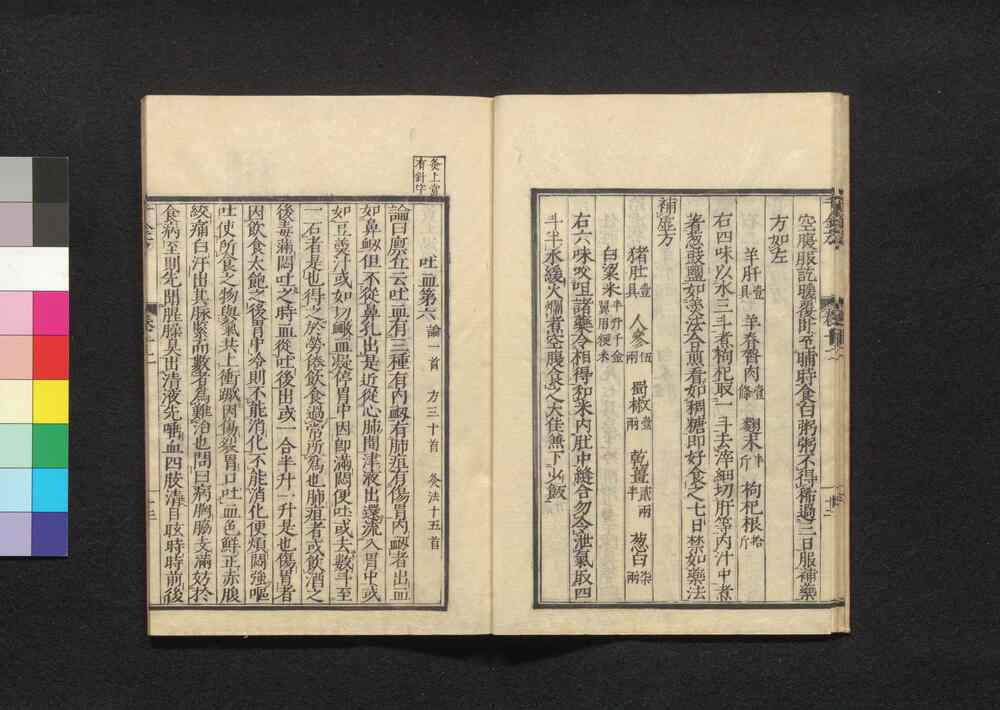 空腹服訖腹即至晡時食白粥粥不得稀過三日服補藥
方如左
羊肝壹具 羊脊膂肉壹條 麴末半斤 枸杞根拾斤
右四味以水三斗煮枸杞取一斗去滓細切肝等內汁中煮
著葱豉鹽如羹法合煎看如稠糖即好食之七日禁如藥法
補虛方
猪肚壹具 人參伍兩 蜀椒壹兩 乾薑貳兩半 葱白柒兩
白粱米半升千金翼用粳米
右六味㕮咀諸藥令相得和米內肚中縫合勿令泄氣取四
斗半水緩火爛煮空腹食之大佳兼下少飯
灸上當有針字
吐血第六 論一首 方三十首 灸法十五首
論曰廩丘云吐血有三種有內衂有肺疽有傷胃內衂者出血
如鼻衂但不從鼻孔出是近從心肺間津液出還流入胃中或
如豆羹汁或如切䘓血凝停胃中因即滿悶便吐或去數斗至
一石者是也得之於勞倦飲食過常所為也肺疽者或飲酒之
後毒滿悶吐之時血從吐後出或一合半升一升是也傷胃者
因飲食太飽之後胃中冷則不能消化不能消化便煩悶強嘔
吐使所食之物與氣共上衝蹴因傷裂胃口吐血色鮮正赤腹
絞痛白汗出其脉緊而數者為難治也問曰病胸脇支滿妨於
食病至則先聞腥臊臭出清液先唾血四肢清目眩時時前後